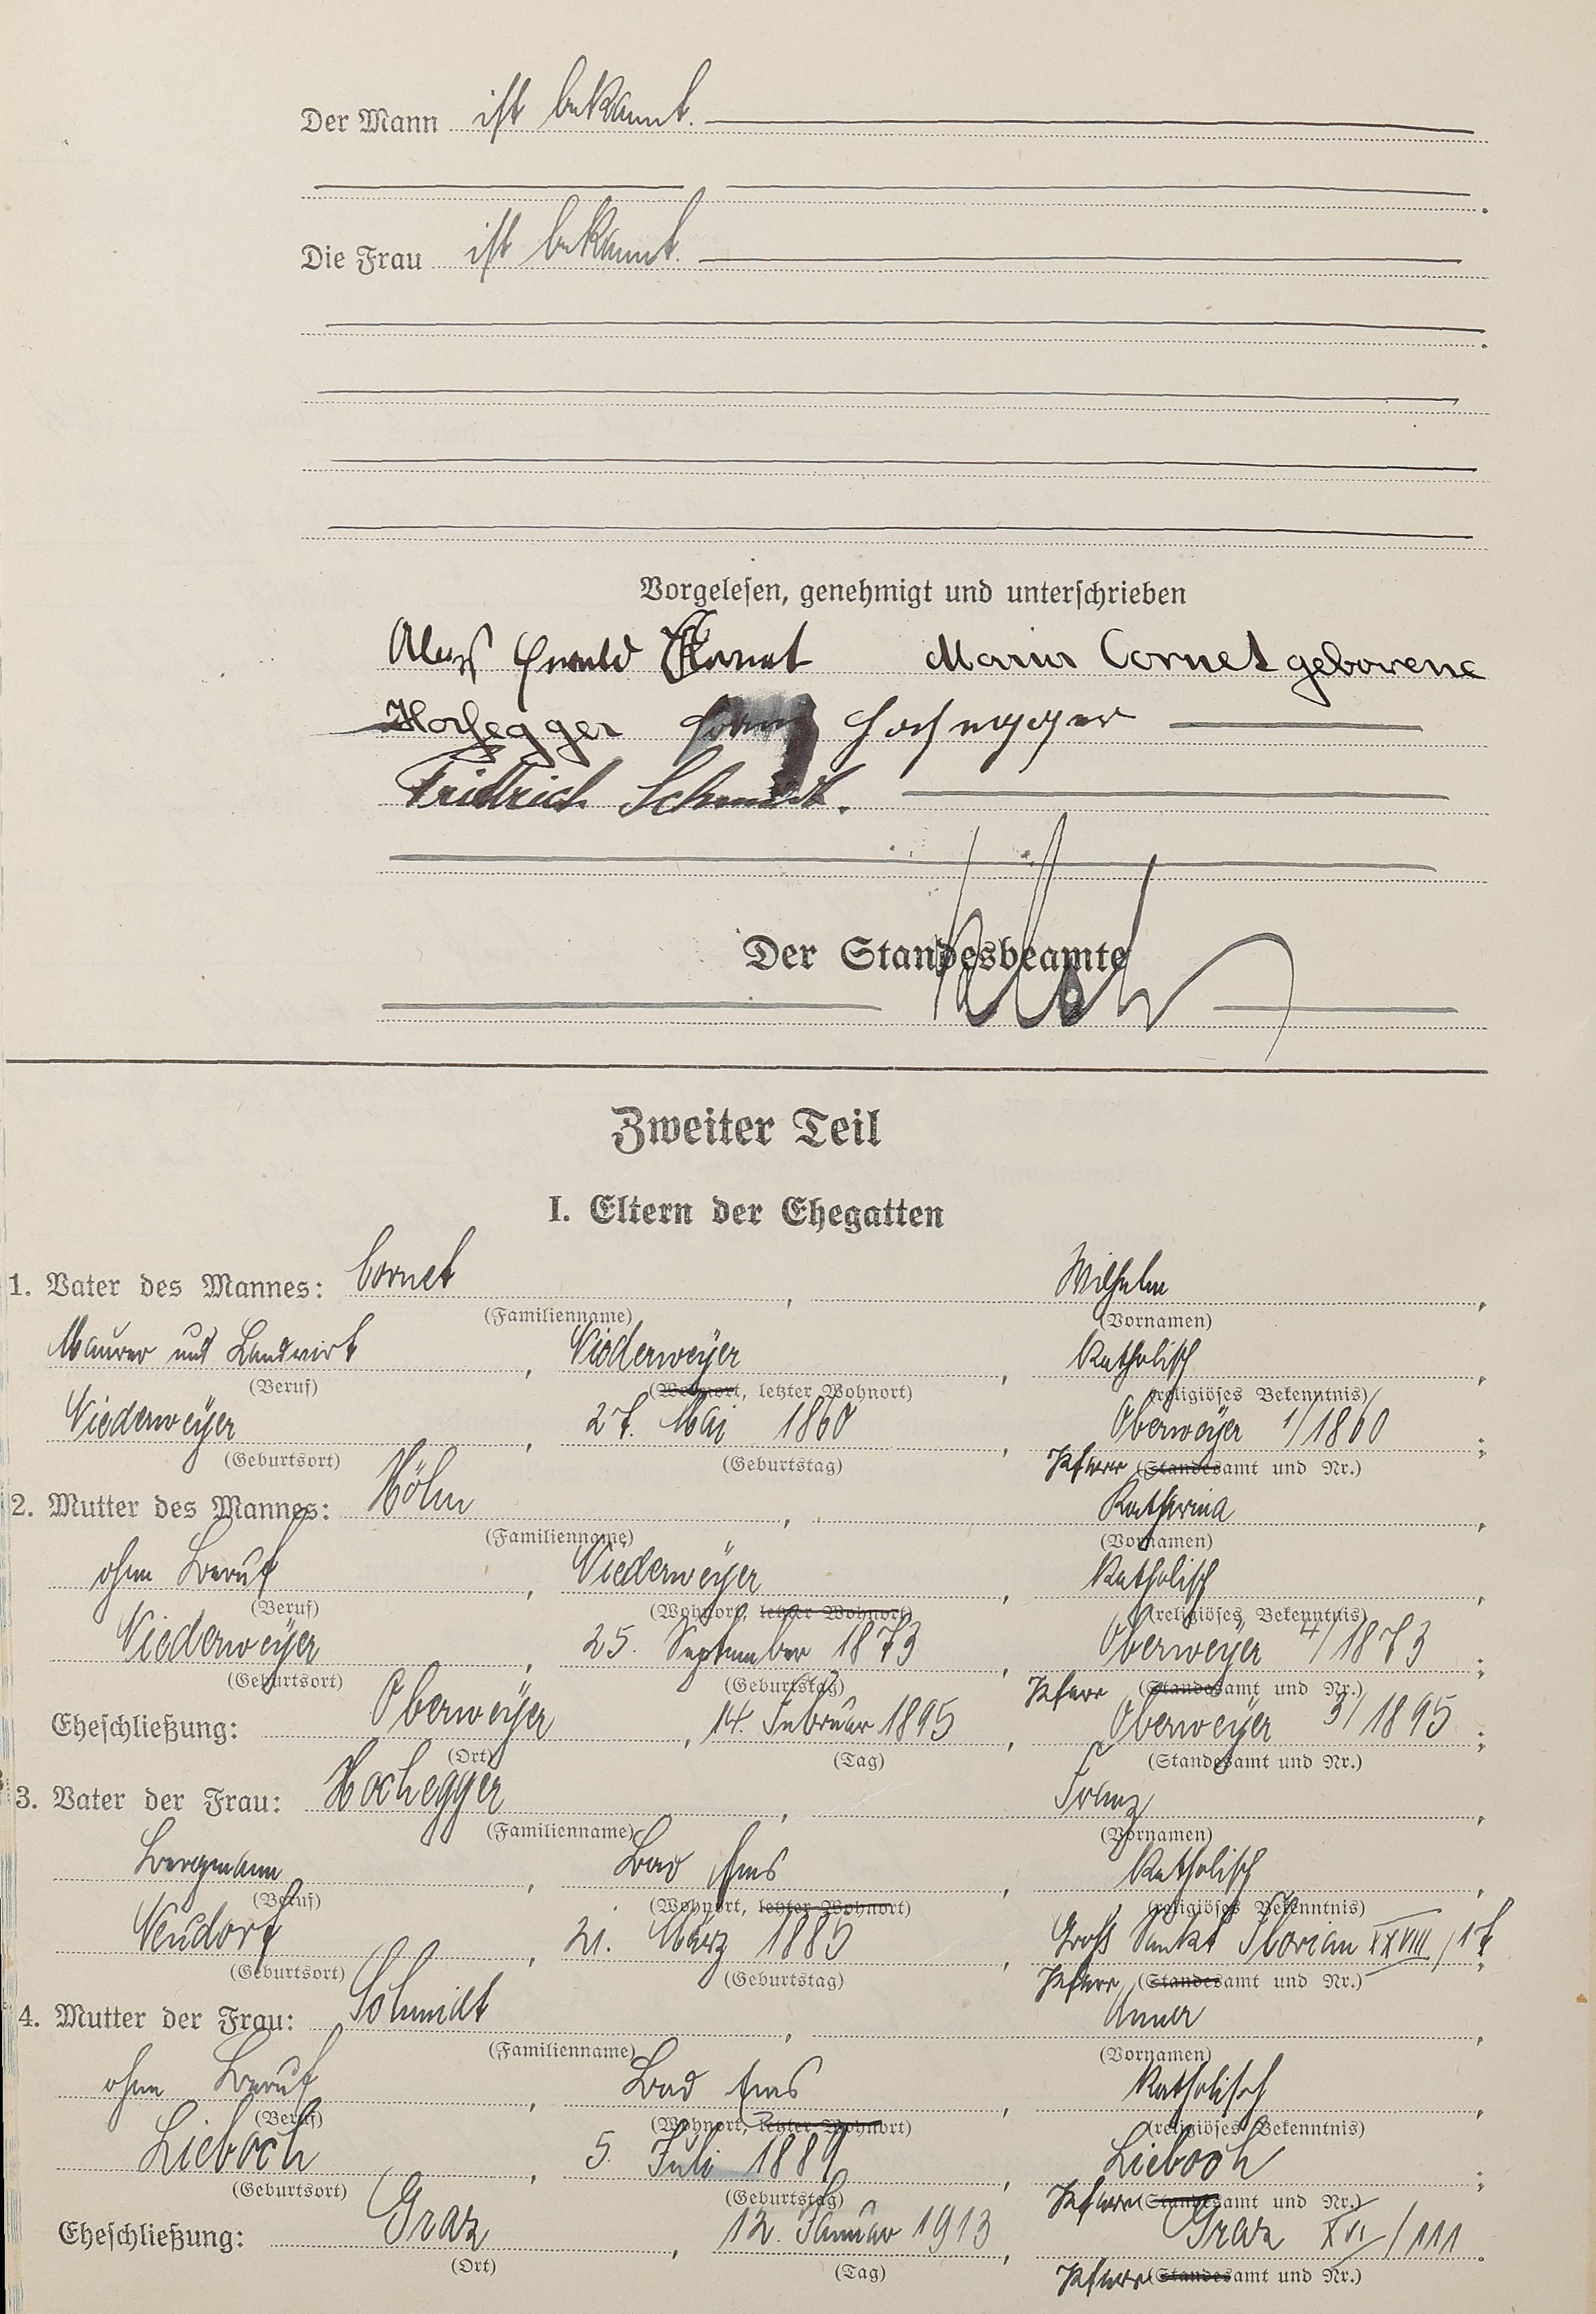 Der Mann ist bekannt.
Die Frau ist bekannt.
Vorgelesen, genehmigt und unterschrieben
Alois Ewald Cornet Maria Cornet geborene
Hochegger Franz Hochegger
Friedrich Schmidt.
Der Standesbeamte
Zweiter Teil
I. Eltern der Ehegatten
1. Vater des Mannes: Cornet, Wilhelm,
(Familienname) (Vornamen)
Maurer und Landwirt, Niederweyer, Katholisch,
(Beruf) (Wohnort, letzter Wohnort) (religiöses Bekenntnis)
Niederweyer, 27. Mai 1860, Oberweyer 1/1860;
(Geburtsort) (Geburtstag) Pfarr (Standesamt und Nr.)
2. Mutter des Mannes: Höhn, Katharina,
(Familienname) (Vornamen)
ohne Beruf, Niederweyer, Katholisch,
(Beruf) (Wohnort, letzter Wohnort) (religiöses Bekenntnis)
Niederweyer, 25. September 1873, Oberweyer 4/1873;
(Geburtsort) (Geburtstag) Pfarr (Standesamt und Nr.)
Eheschließung: Oberweyer, 14. Februar 1895, Oberweyer 3/1895;
(Ort) (Tag) (Standesamt und Nr.)
3. Vater der Frau: Hochegger, Franz,
(Familienname) (Vornamen)
Bergmann, Bad Ems, Katholisch,
(Beruf) (Wohnort, letzter Wohnort) (religiöses Bekenntnis)
Neudorf, 21. März 1885, Groß Sankt Florian XXVIII/17;
(Geburtsort) (Geburtstag) Pfarr (Standesamt und Nr.)
4. Mutter der Frau: Schmidt, Anna,
(Familienname) (Vornamen)
ohne Beruf, Bad Ems, Katholisch,
(Beruf) (Wohnort, letzter Wohnort) (religiöses Bekenntnis)
Lieboch, 5. Juli 1889, Lieboch;
(Geburtsort) (Geburtstag) Pfarr (Standesamt und Nr.)
Eheschließung: Graz, 12. Januar 1913, Graz XVI/111.
(Ort) (Tag) Pfarr (Standesamt und Nr.)